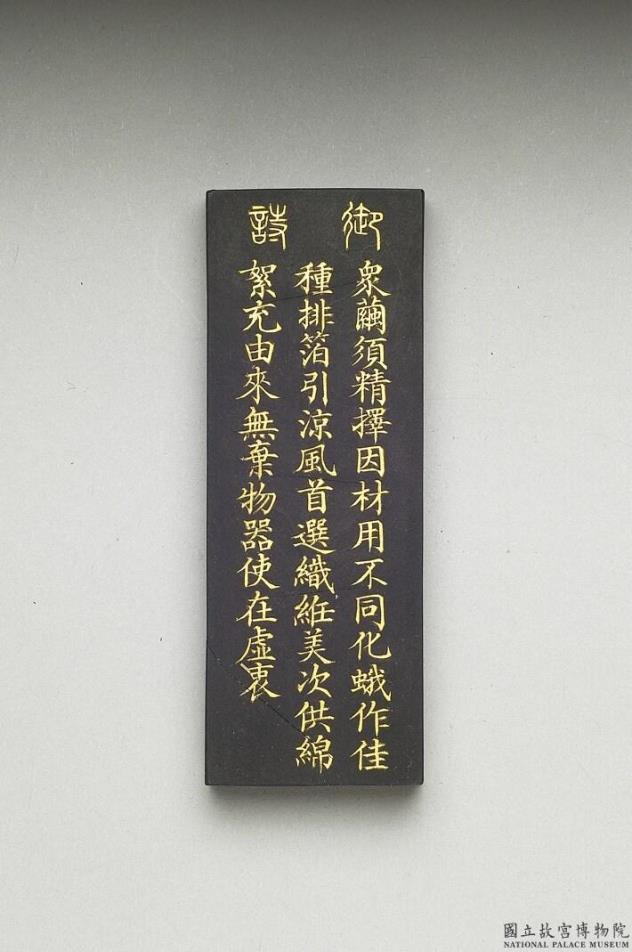 御
詩
眾繭須精擇因材用不同化蛾作佳
種排箔引涼風首選織絍美次供綿
絮充由來無棄物器使在虛衷
國立故宮博物院
NATIONAL PALACE MUSEUM